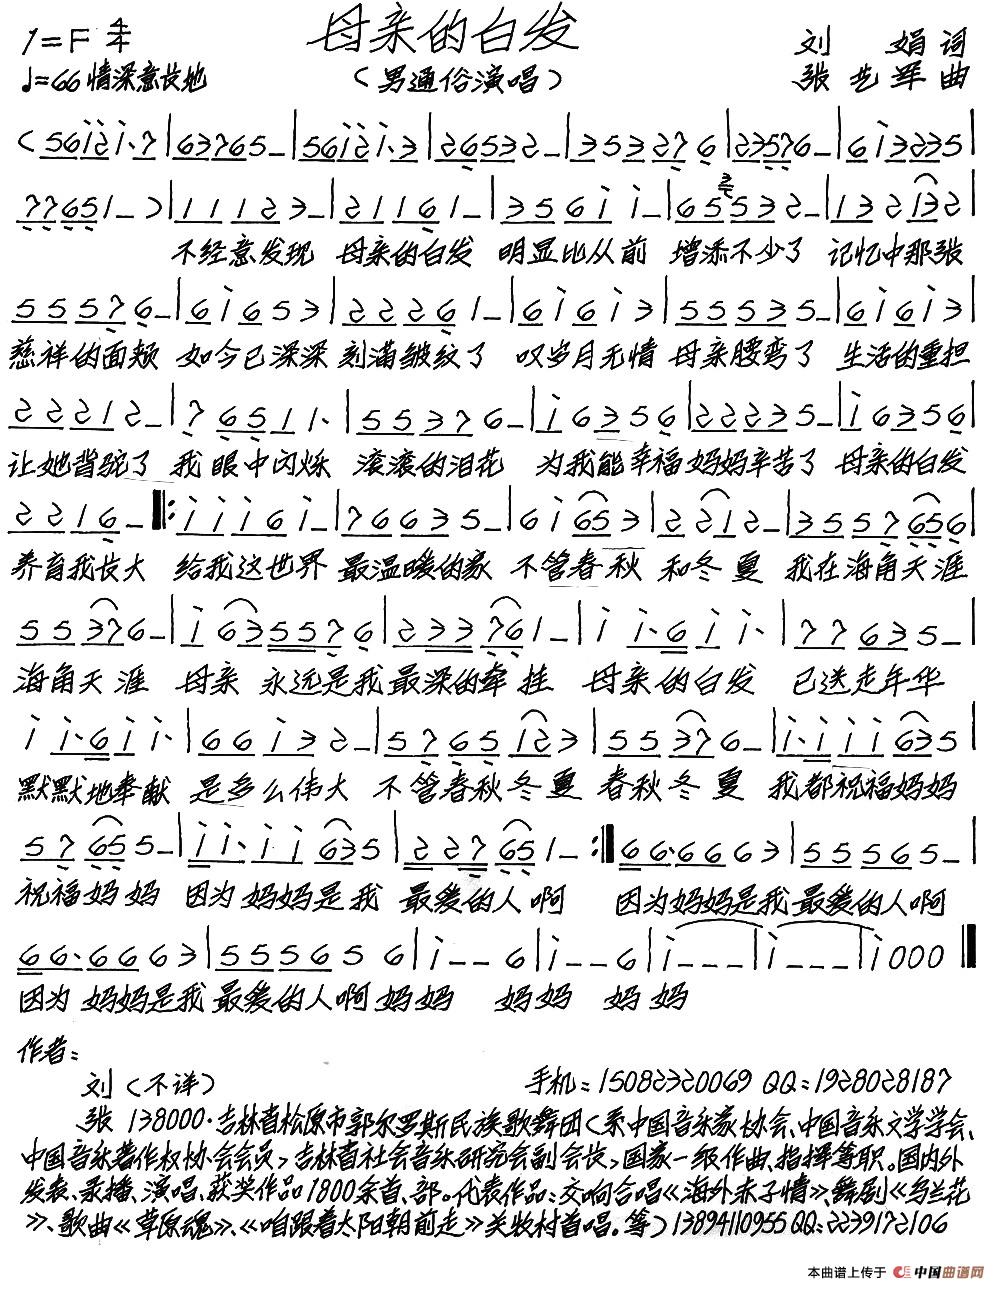 母亲的白发
1=F 4/4
♩=66 情深意长地
（男通俗演唱）
刘 娟 词
张艺军 曲
不经意发现 母亲的白发 明显比从前 增添不少了 记忆中那张
慈祥的面颊 如今已深深刻满皱纹了 叹岁月无情 母亲腰弯了 生活的重担
让她背驼了 我眼中闪烁 滚滚的泪花 为我能幸福妈妈辛苦了 母亲的白发
养育我长大 给我这世界 最温暖的家 不管春秋 和冬夏 我在海角天涯
海角天涯 母亲 永远是我最深的牵挂 母亲的白发 已送走年华
默默地奉献 是多么伟大 不管春秋冬夏 春秋冬夏 我都祝福妈妈
祝福妈妈 因为妈妈是我 最爱的人啊 因为妈妈是我最爱的人啊
因为 妈妈是我最爱的人啊妈妈 妈妈 妈妈
作者：
刘（不详） 手机：15082320069 QQ：1928028187
张 138000·吉林省松原市郭尔罗斯民族歌舞团（系中国音乐家协会、中国音乐文学学会、
中国音乐著作权协会会员，吉林省社会音乐研究会副会长，国家一级作曲、指挥等职。国内外
发表、录播、演唱、获奖作品1800余首、部。代表作品：交响合唱《海外赤子情》、舞剧《乌兰花
》、歌曲《草原魂》、《咱跟着太阳朝前走》关牧村首唱。等）13894110955 QQ：2239172106
本曲谱上传于 中国曲谱网